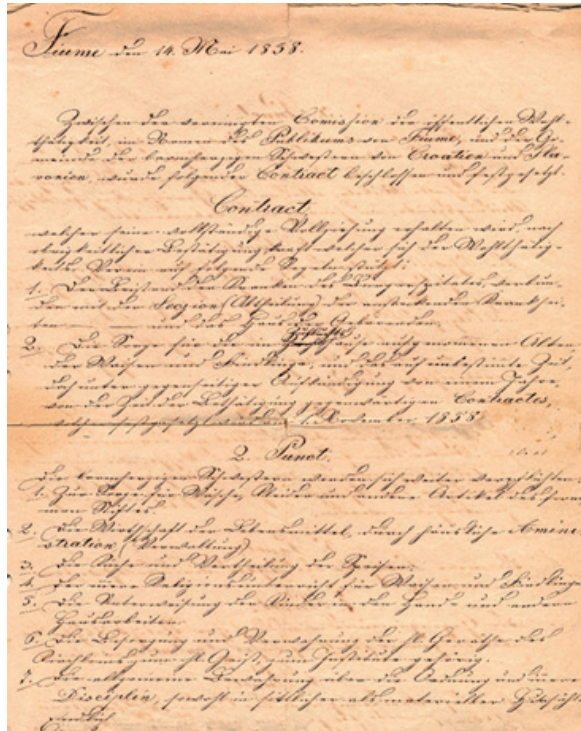 Fiume den 14. Mai 1858.
Zwischen der vereinigten Comission der öffentlichen Wohl-
thätigkeit, im Namen des Publikums von Fiume, und der Ge-
meinde der barmherzigen Schwestern von Croatien und Sla-
vonien, wurde folgender Contract beschlossen und festgesetzt.
Contract.
welcher seine vollständige Vollziehung erhalten wird, nach
obrigkeitlicher Bestätigung, kraft welcher sich der Wohlthätig-
keits Verein auf folgende Regeln stützt:
1. Der Beistand der Kranken des Bürgerspitales, verbun-
den mit der Sezion (Abtheilung) der ansteckenden Krankhei-
ten und das Haus der Gebärenden
2. Die Sorge für die im aufgenommenen Alten
der Waisen und Findlinge, und das auf unbestimmte Zeit,
doch unter gegenseitiger Aufkündigung von einem Jahre,
von der Zeit der Bestätigung gegenwärtigen Contractes,
festgesetzt 1. November 1858.
2. Punct.
Die barmherzigen Schwestern werden sich weiter verpflichten
1. Zur Sorge für Wäsche, Kleider und andere Artikel des from-
men Stiftes.
2. Die Wirthschaft der Lebensmittel, durch häusliche Amini-
stration (Verwaltung)
3. Die Küche und Vertheilung der Speisen.
4. Der Religionsunterricht für Waisen und Findlinge
5. Die Unterweisung der Kinder in den Hand und andern
Hausarbeiten.
6. Die Besorgung und Verwahrung der hl. Geräthe des
Kirchleins zum hl. Geist, zum Institute gehörig.
7. Die allgemeine Bewahrung über die Ordnung und innere
Disciplin, sowohl in sittlicher als materieller Hinsicht